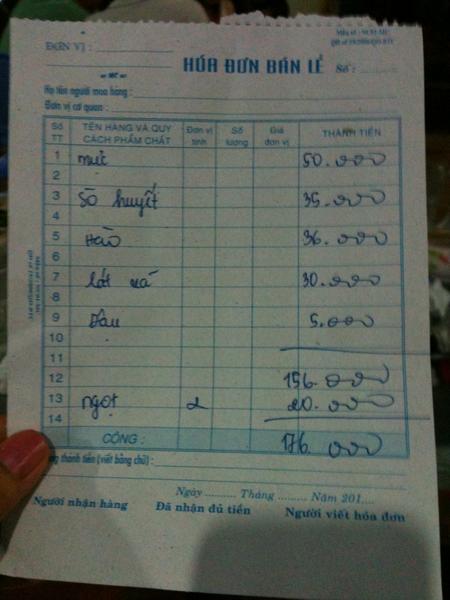 ĐƠN VỊ :
HÓA ĐƠN BÁN LẺ Số :
Họ tên người mua hàng :
Đơn vị cơ quan :
Số TT TÊN HÀNG VÀ QUY CÁCH PHẨM CHẤT Đơn vị tính Số lượng Giá đơn vị THÀNH TIỀN
1 mực 50.000
2
3 Sò huyết 35.000
4
5 Hào 36.000
6
7 30.000
8
9 5.000
10
11
12 156.000
13 ngọt 2 20.000
14
CỘNG : 176.000
Cộng thành tiền (viết bằng chữ) :
Ngày ......... Tháng ......... Năm 201....
Người nhận hàng Đã nhận đủ tiền Người viết hóa đơn